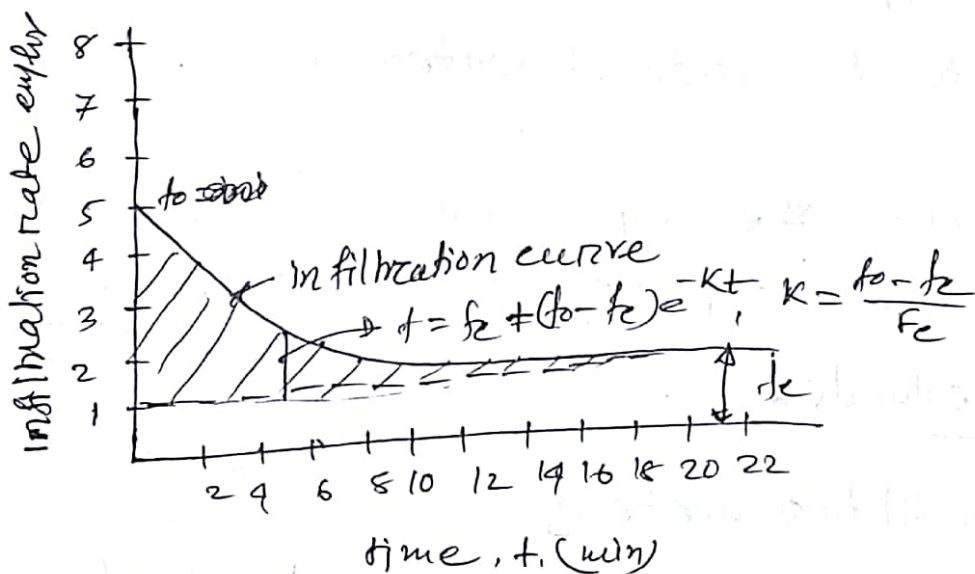 Infiltration rate cm/hr
8
7
6
5
4
3
2
1
fo
infiltration curve
f = fc + (fo - fc)e^-Kt, K = fo - fc / Fc
fc
2 4 6 8 10 12 14 16 18 20 22
time, t. (min)